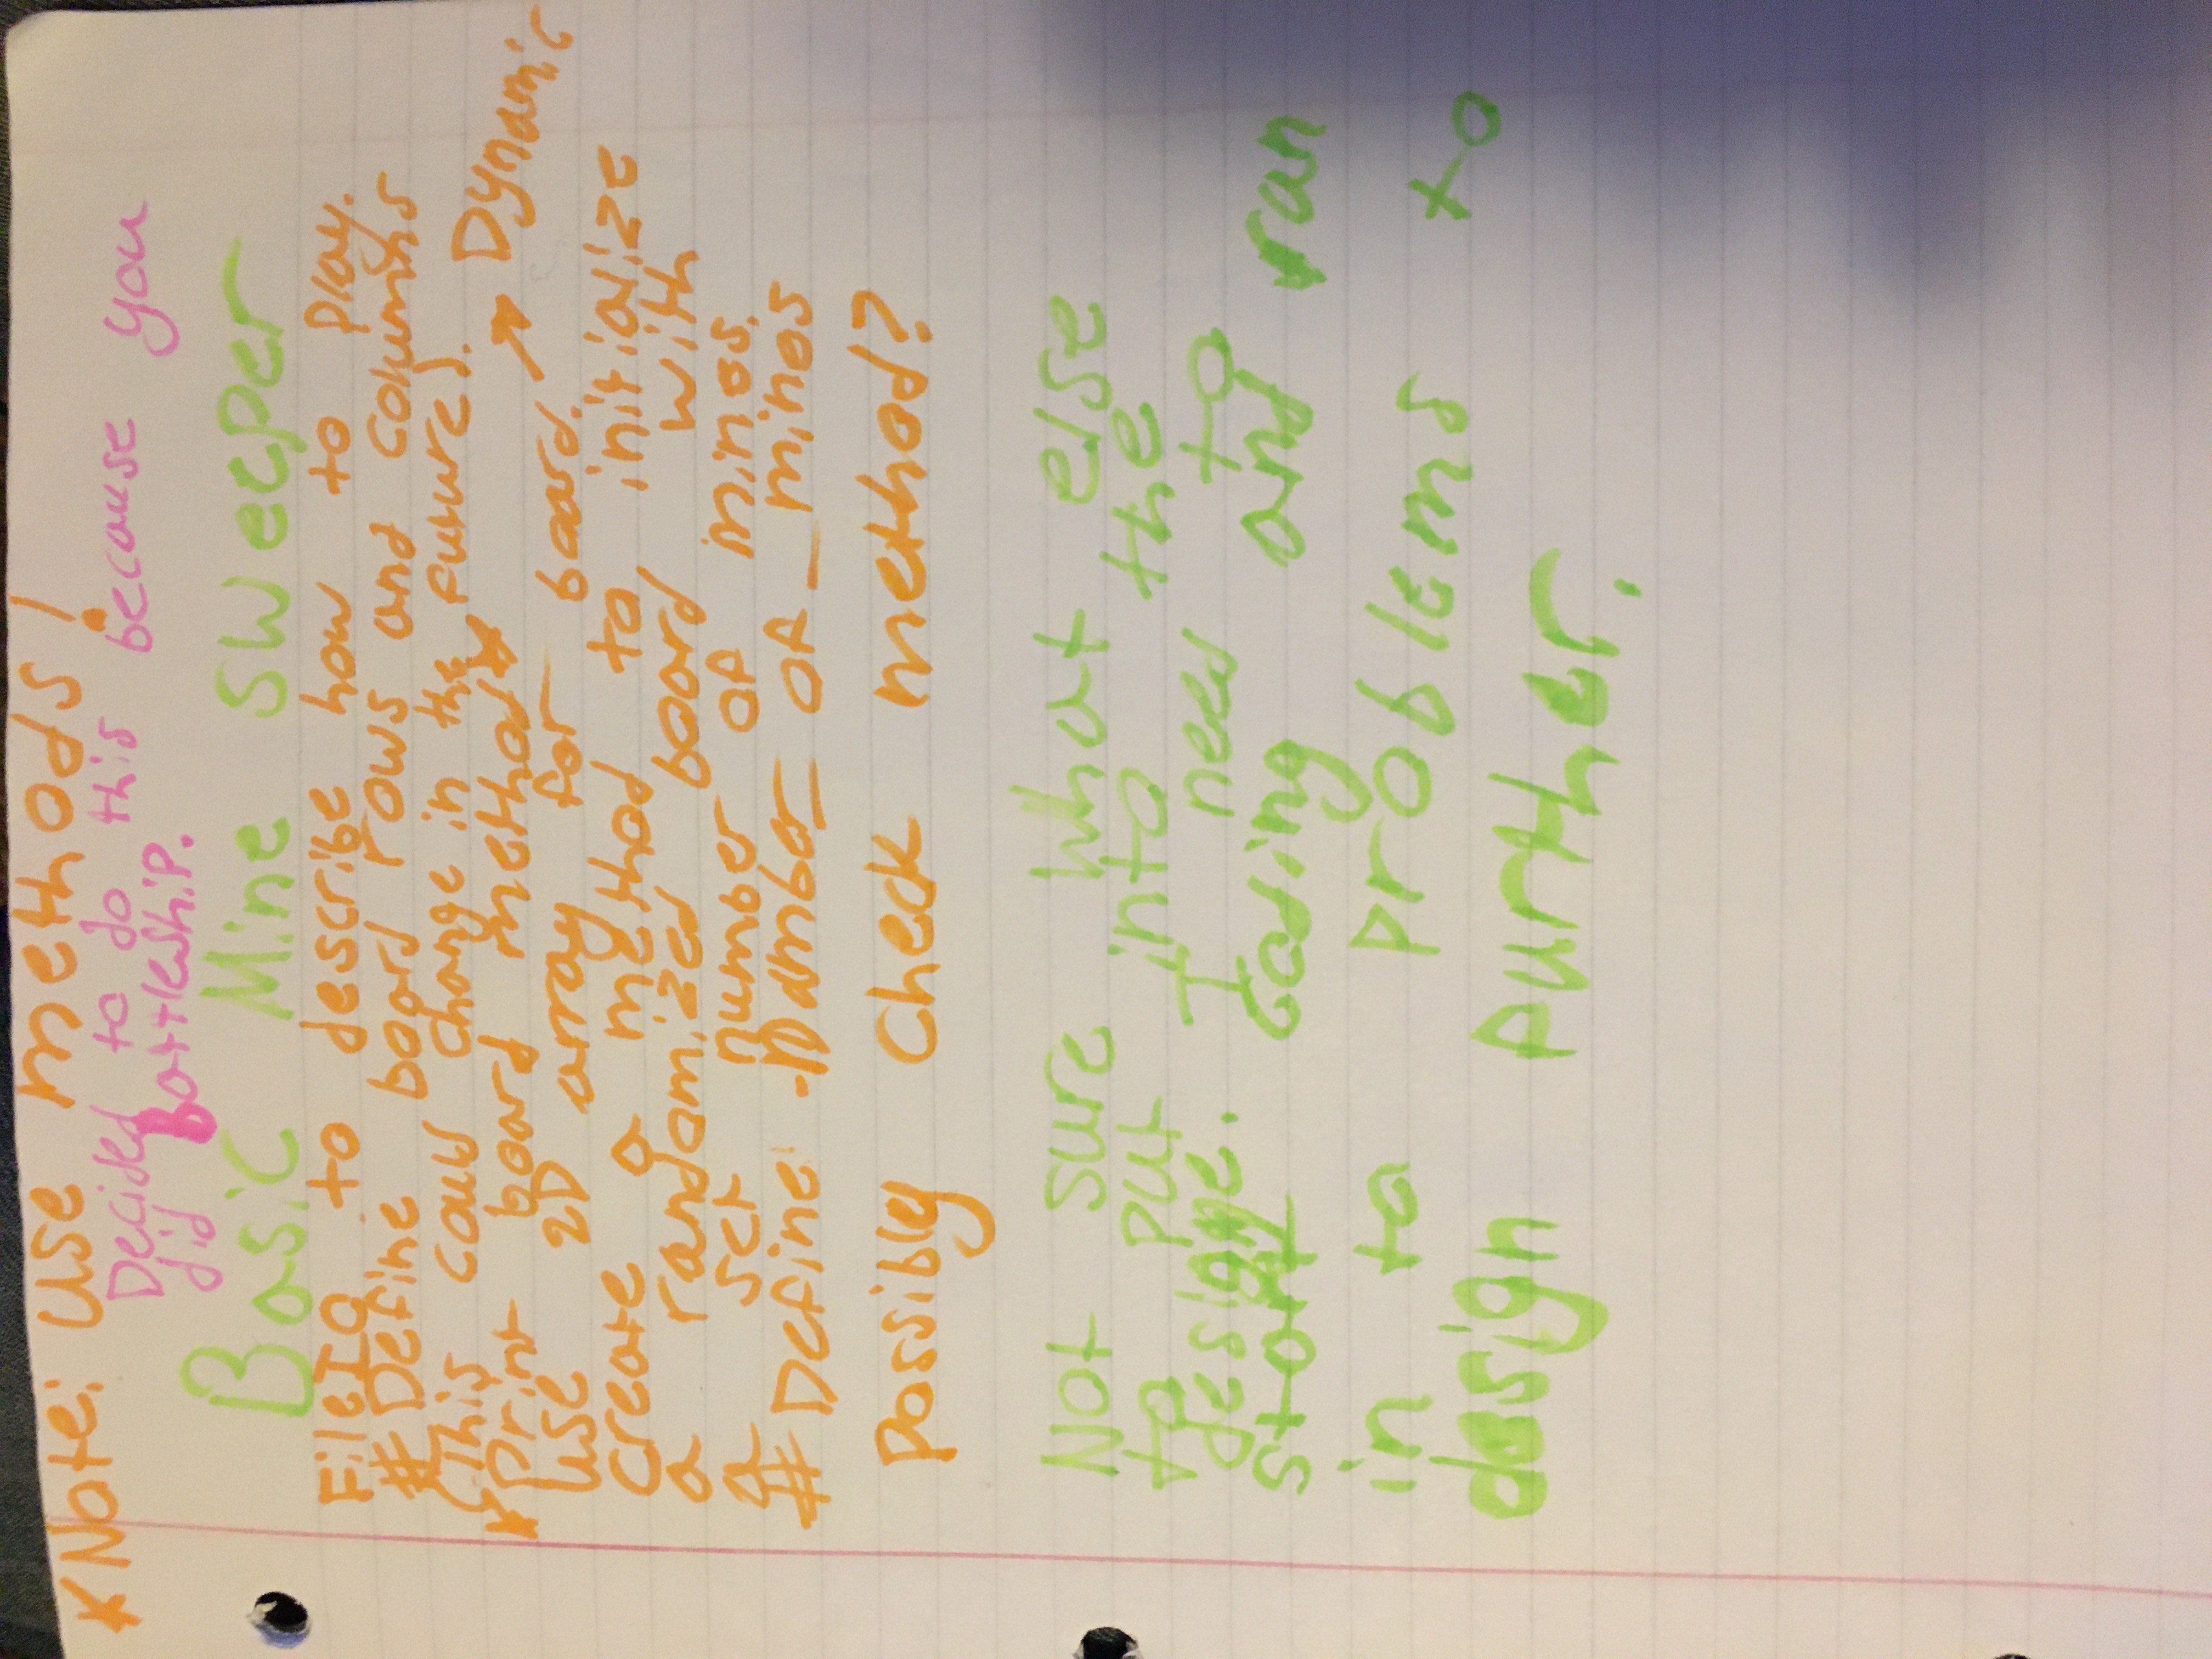 *Note: Use methods!
Decided to do this because you
did Battleship.
Basic Mine sweeper
FileIO to describe how to play.
#Define board rows and columns
(This could change in the future).
*Print board method*
use 2D array for board. → Dynamic
create a method to initialize
a randomized board with
a set number of mines.
#Define Number_of_mines
possibly check method?
Not sure what else
to put into the
designe. I need to
start coding and ran
in to problems to
design further.